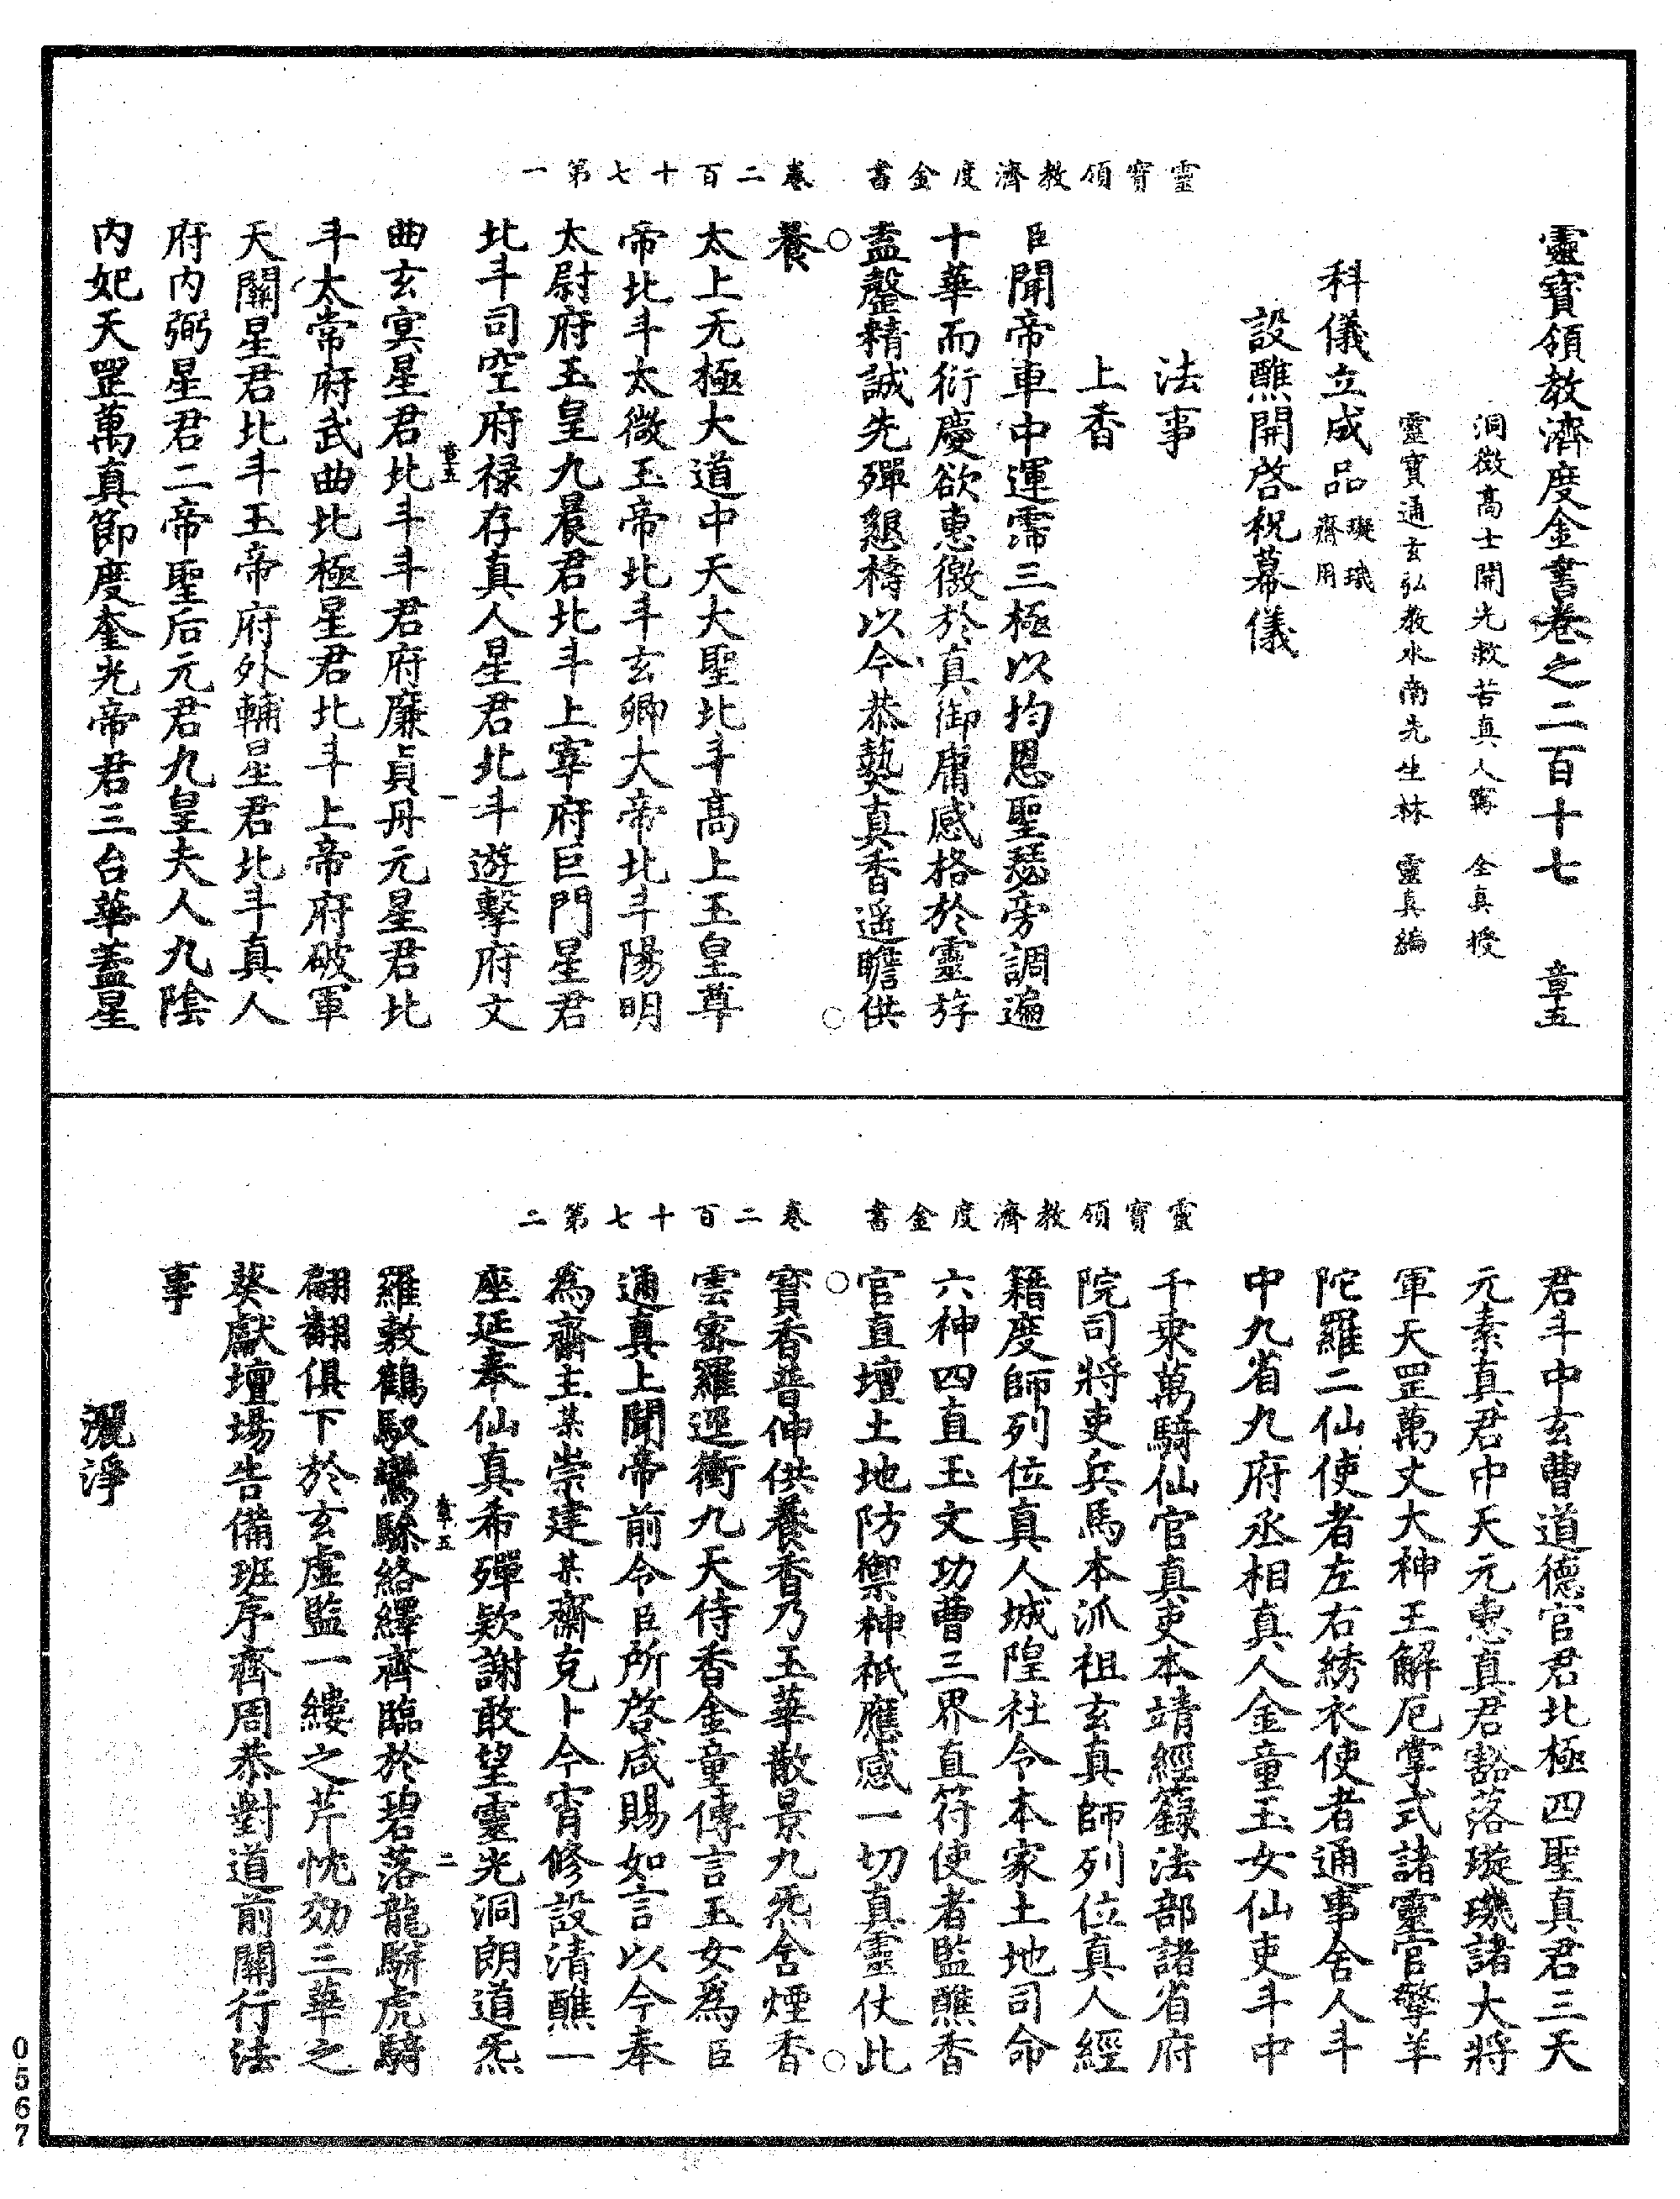 靈寶領教濟度金書 卷二百十七第一
靈寶領教濟度金書卷之二百十七 章五
洞微高士開光救苦真人甯 全真授
靈寶通玄弘教水南先生林 靈真編
科儀立成品璇璣齋用
設醮開啓祝幕儀
法事
上香
臣聞帝車中運霈三極以均恩聖瑟旁調遍
十華而衍慶欲惠徼於真御庸感格於靈斿
盍罄精誠先殫懇禱以今恭爇真香遥瞻供
養
太上无極大道中天大聖北斗高上玉皇尊
帝北斗太微玉帝北斗玄卿大帝北斗陽明
太尉府玉皇九晨君北斗上宰府巨門星君
北斗司空府禄存真人星君北斗遊擊府文
曲玄冥星君北斗斗君府廉貞丹元星君北
斗太常府武曲北極星君北斗上帝府破軍
天關星君北斗玉帝府外輔星君北斗真人
府内弼星君二帝聖后元君九皇夫人九陰
内妃天罡萬真節度奎光帝君三台華蓋星
章五 一
靈寶領教濟度金書 卷二百十七第二
君斗中玄曹道德官君北極四聖真君三天
元素真君中天元惠真君豁落璇璣諸大將
軍天罡萬丈大神王解厄掌式諸靈官擎羊
陀羅二仙使者左右綉衣使者通事舍人斗
中九省九府丞相真人金童玉女仙吏斗中
千乘萬騎仙官真吏本靖經籙法部諸省府
院司將吏兵馬本派祖玄真師列位真人經
籍度師列位真人城隍社令本家土地司命
六神四直玉文功曹三界直符使者監醮香
官直壇土地防禦神祇應感一切真靈仗此
寶香普伸供養香乃玉華散景九炁含煙香
雲密羅逕衝九天侍香金童傳言玉女為臣
通真上聞帝前令臣所啓咸賜如言以今奉
為齋主某崇建某齋克卜今宵修設清醮一
座延奉仙真希殫欵謝敢望靈光洞朗道炁
羅敷鶴馭鸞驂絡繹齊臨於碧落龍駢虎騎
翩翻俱下於玄虛監一縷之芹忱効三華之
葵獻壇場告備班序齊周恭對道前關行法
事
灑淨
章五 二
0567